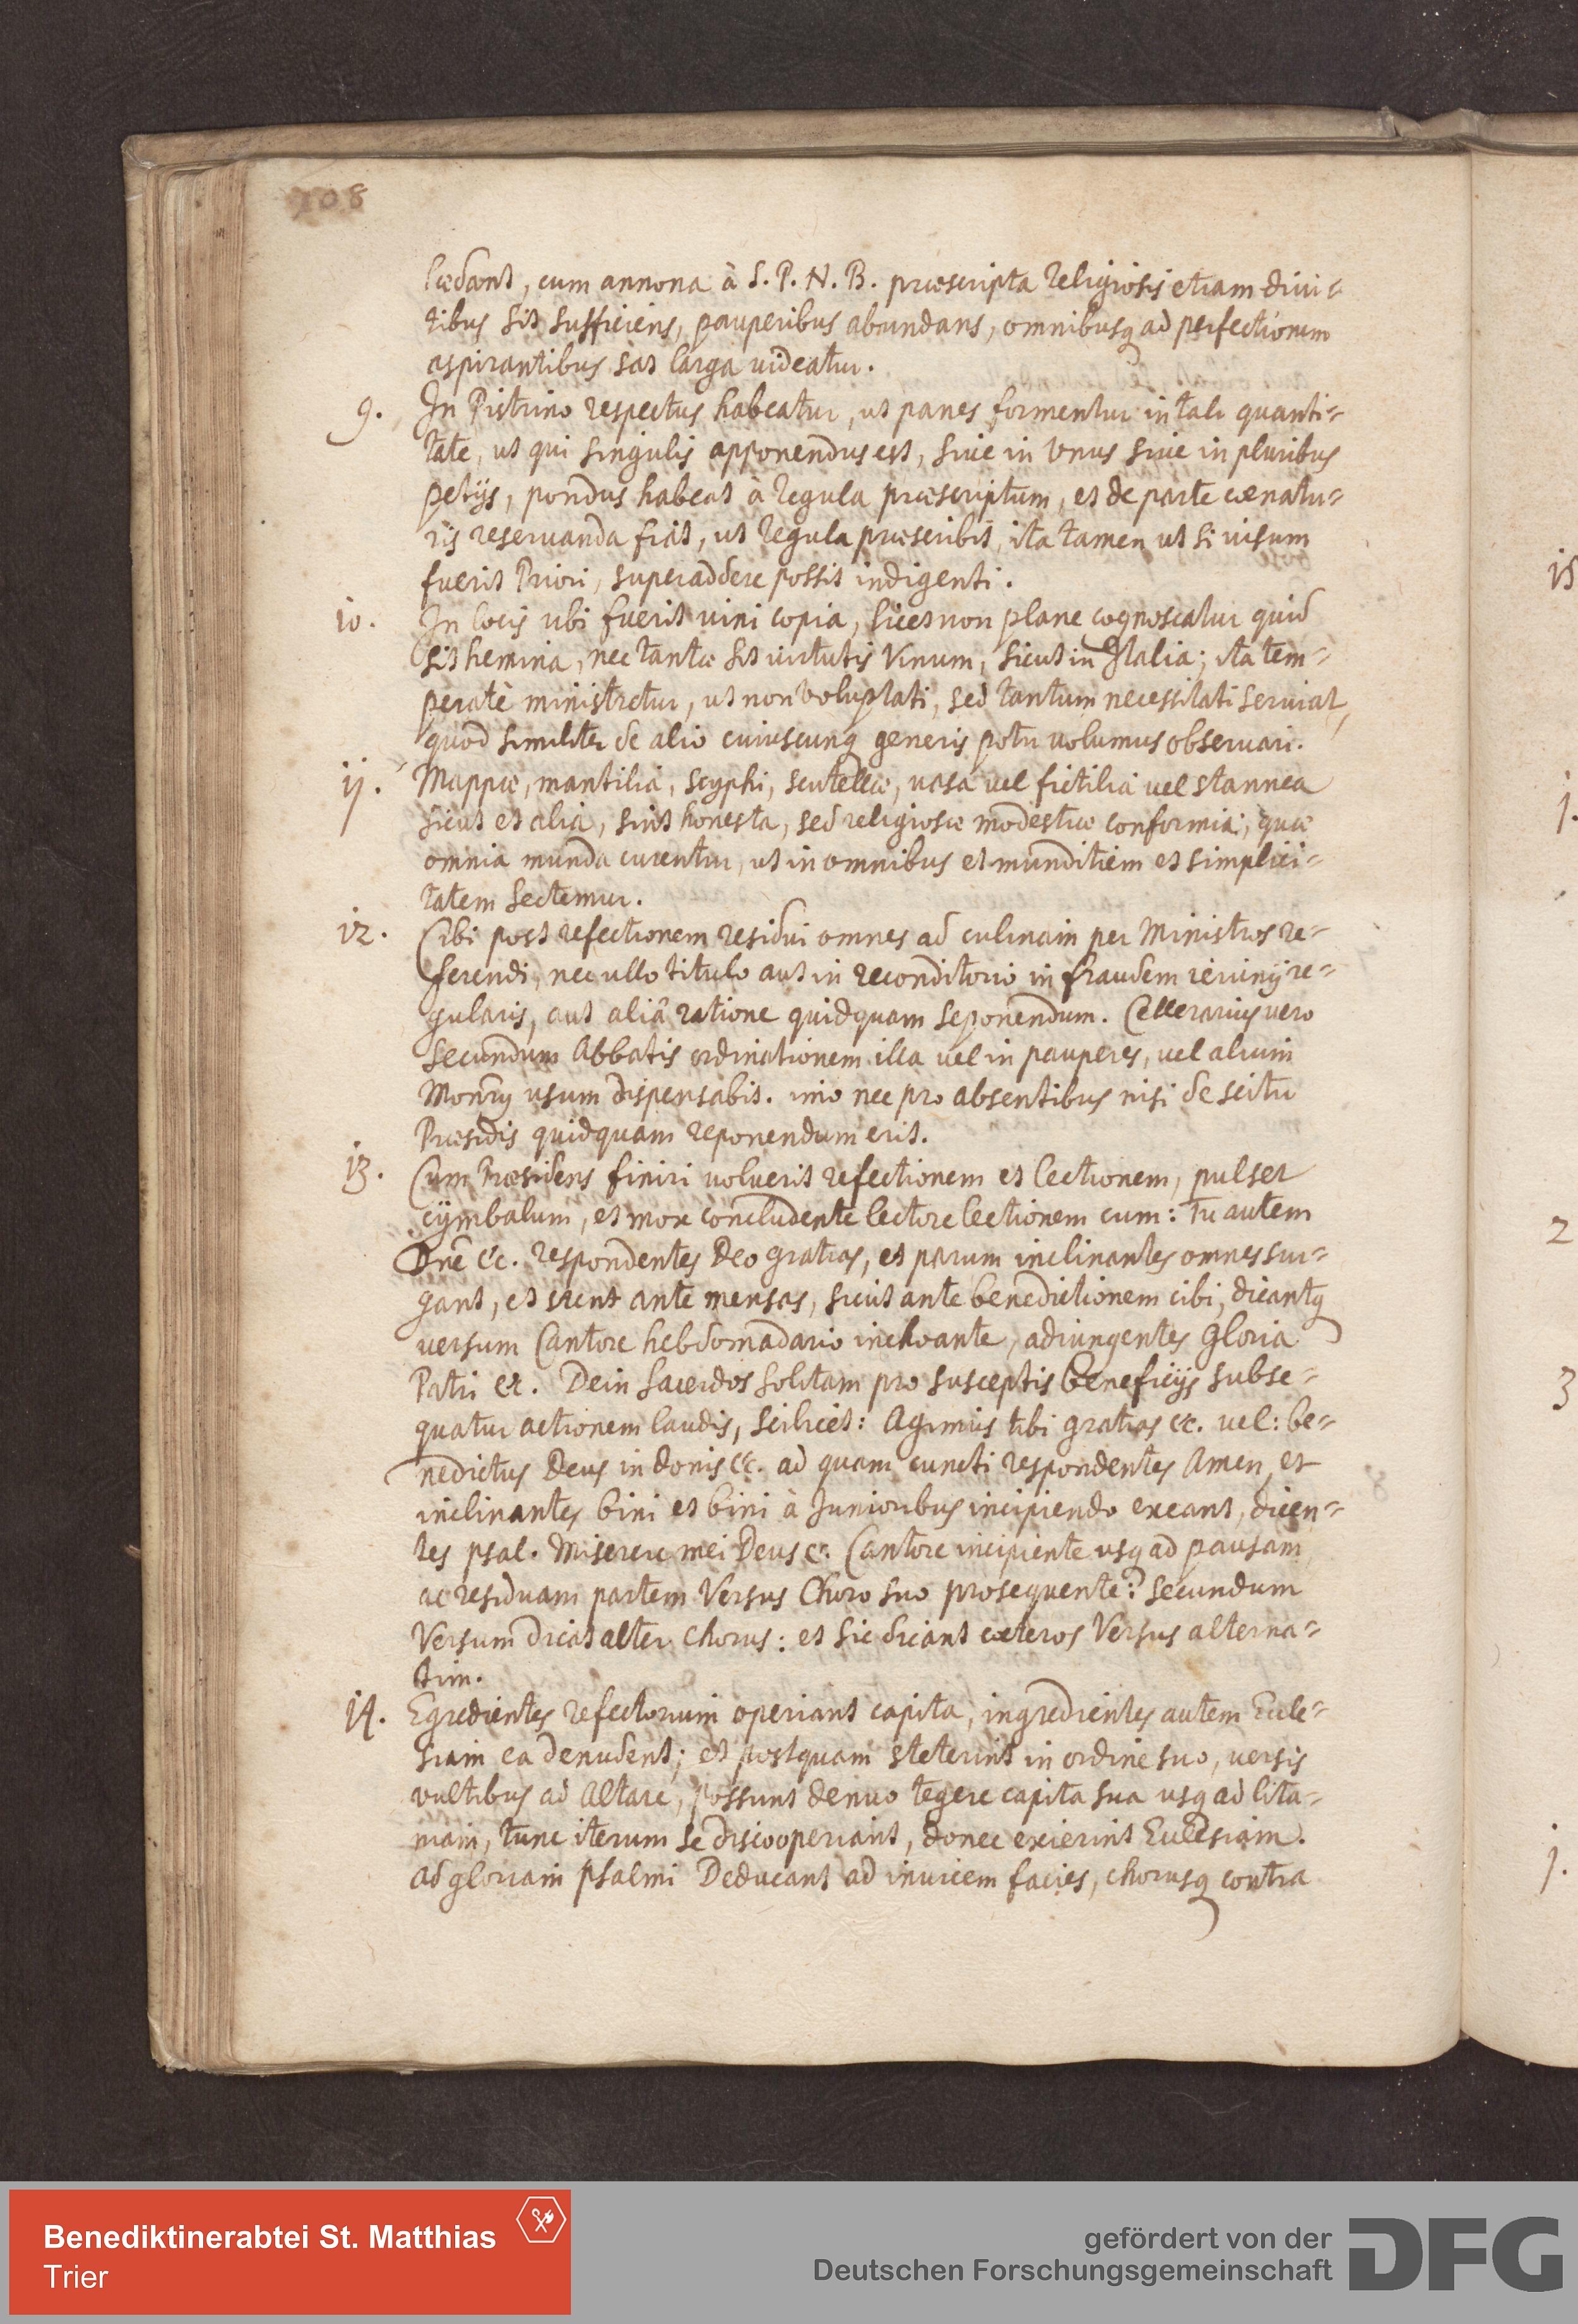 108
lædant, cum annona à S. P. N. B. præscripta Religiosis etiam diui=
tibus sit sufficiens, pauperibus abundans, omnibusq ad perfectionem
aspirantibus sat larga uideatur.
9. In Pistrino respectus habeatur, ut panes formentur in tali quanti=
tate, ut qui singulis apponendus est, siue in Vnus siue in pluribus
petijs, pondus habeat à Regula præscriptum, et de parte cœnatu=
ris reseruanda fiat, ut Regula præscribit, ita tamen ut si uisum
fuerit Priori, superaddere possit indigenti.
10. In locis ubi fuerit uini copia, licet non plane cognoscatur quid
sit hemina, nec tantæ sit uirtutis Vinum, sicut in Italia; ita tem=
peratè ministretur, ut non voluptati, sed tantum necessitati seruiat,
quod similiter de alio cuiuscunq generis potu uolumus obseruari.
11. Mappæ, mantilia, scyphi, scutellæ, uasa uel fictilia uel stannea
sicut et alia, sint honesta, sed religiosæ modestiæ conformia; quæ
omnia munda curentur, ut in omnibus et munditiem et simplici=
tatem sectemur.
12. Cibi post refectionem residui omnes ad culinam per Ministros re=
ferendi, nec ullo titulo aut in reconditorio in fraudem ieiunij re=
gularis, aut aliâ ratione quidquam seponendum. Cellerarius uero
secundum Abbatis ordinationem illa uel in pauperes, uel alium
Monrÿ usum dispensabit. imo nec pro absentibus nisi de scitu
Præsidis quidquam reponendum erit.
13. Cum Præsidens finiri uoluerit refectionem et lectionem, pulset
cymbalum, et mox concludente lectore lectionem cum: Tu autem
Dnē &c. respondentes Deo gratias, et parum inclinantes omnes sur=
gant, et stent ante mensas, sicut ante benedictionem cibi, dicantq
uersum Cantore hebdomadario inchoante, adiungentes Gloria
Patri &c. Dein Sacerdos solitam pro susceptis beneficijs subse=
quatur actionem laudis, scilicet: Agimus tibi gratias &c. uel: be=
nedictus Deus in donis &c. ad quam cuncti respondentes Amen, et
inclinantes bini et bini à Junioribus incipiendo exeant, dicen=
tes psal. Miserere mei Deus &c. Cantore incipiente usq ad pausam
ac residuam partem Versus Choro suo prosequente: secundum
Versum dicat alter chorus: et sic dicant cæteros Versus alterna=
tim.
14. Egredientes refectorium operiant capita, ingredientes autem Eccle=
siam ea denudent; et postquam steterint in ordine suo, uersis
uultibus ad Altare, possunt denuo tegere capita sua usq ad lita=
niam, tunc iterum se discooperiant, donec exierint Ecclesiam.
Ad gloriam psalmi Deducant ad inuicem facies, chorusq contra
15
1.
2
3
1.
Benediktinerabtei St. Matthias
Trier
gefördert von der
Deutschen Forschungsgemeinschaft
DFG